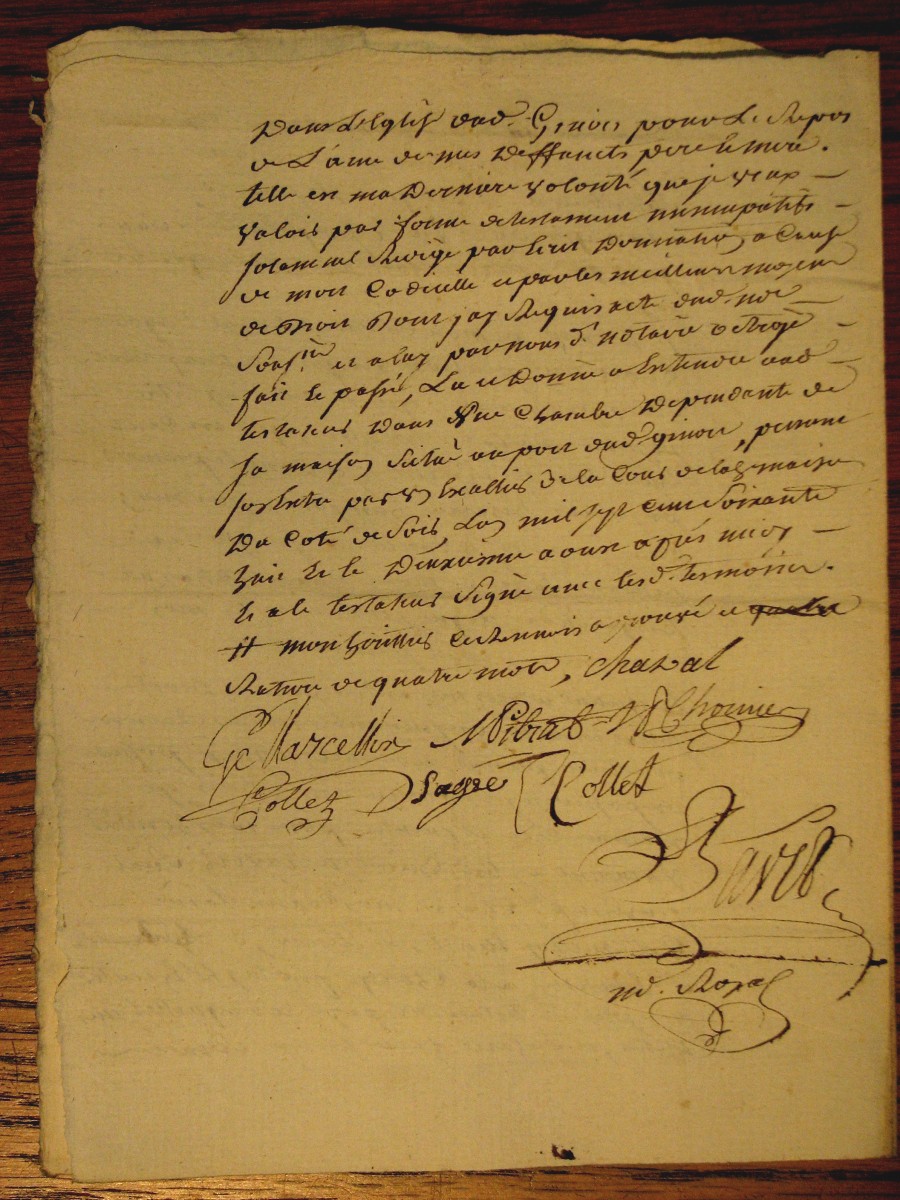 Dans L'eglise dud. Gixois pour Le Repos
de L'ame de mes Deffuncts pere Et mere.
telle est ma Derniere volonté que je veux
valoir par forme de testament nuncupatif
solamnel Redigé par Ecrit Donnation a Cause
de mort Codicille et par les meilleurs moyens
de Droit Dont jay Requis acte dud. no.re
Sous.né et a luy par nous d. notaire octroyé
fait Et passé, Lu et Donné a Entendre aud.
testateur Dans Une Chambre Dependante de
Sa maison Situé au port dud., prenant
par Un Escallier de la Cour de lad. maison
Du Coté de Soir, L'an mil sept Cent Soixante
huit Et le Deuxieme aoust après midy
Et a le testateur Signé avec lesd. temoins.
# mon heritier Ce Renvois aprouvé et quatre
Rature de quatre mots, Chaval
Marcellin Pitrat Chomier
Collet Sagée Collet
Bavet
no.e Royal